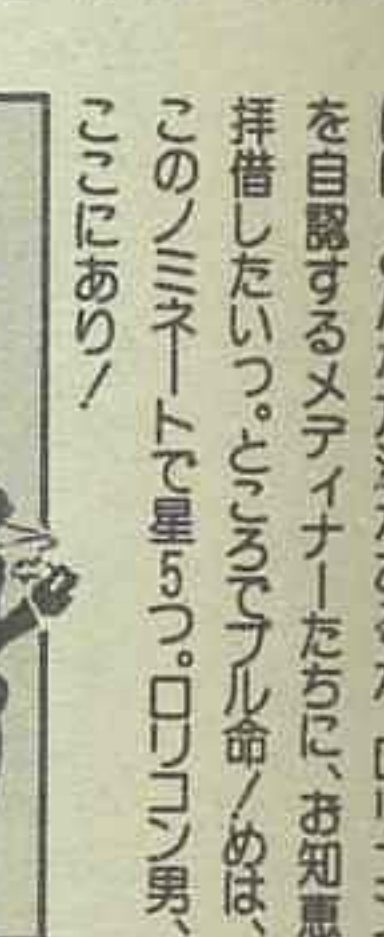 を自認するメディナーたちに、お知恵
拝借したいっ。ところでブル命!めは、
このノミネートで星5つ。ロリコン男、
ここにあり!